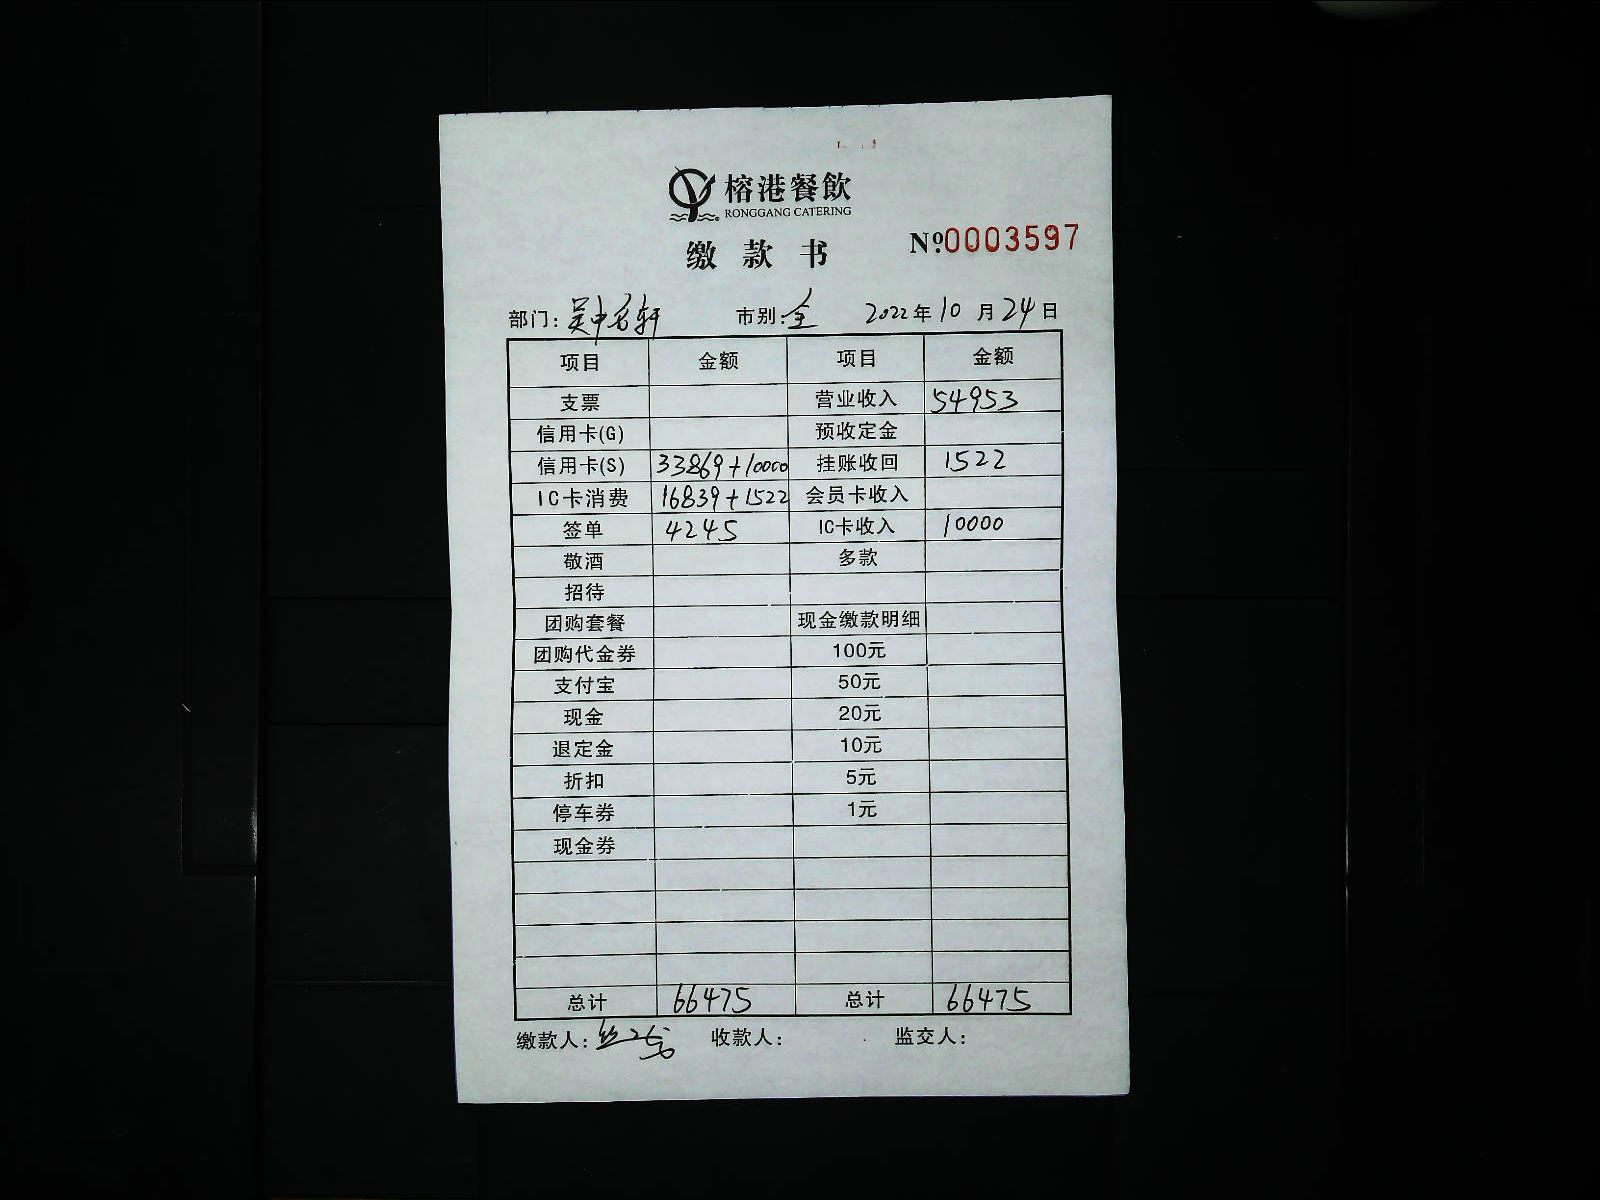 榕港餐飲
RONGGANG CATERING
缴款书
№:0003597
部门: 吴中名轩 市别: 全 2022年10月24日
项目 金额 项目 金额
支票 营业收入 54953
信用卡(G) 预收定金
信用卡(S) 33869+10000 挂账收回 1522
IC卡消费 16839+1522 会员卡收入
签单 4245 IC卡收入 10000
敬酒 多款
招待
团购套餐 现金缴款明细
团购代金券 100元
支付宝 50元
现金 20元
退定金 10元
折扣 5元
停车券 1元
现金券
总计 66475 总计 66475
缴款人: 收款人: 监交人: